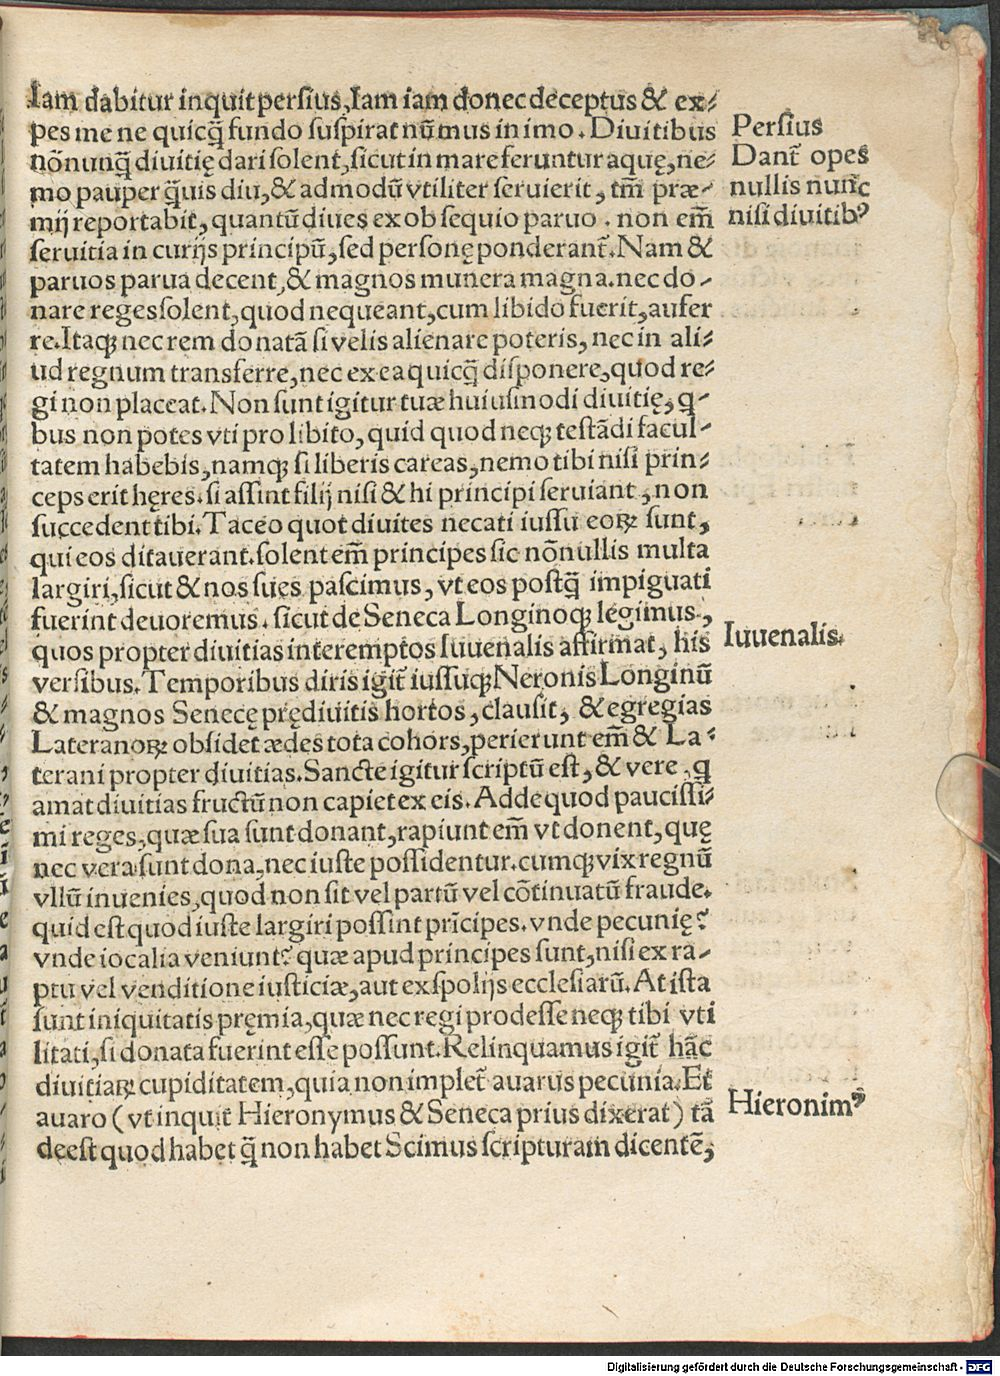 Iam dabitur inquit persius, Iam iam donec deceptus & ex⸗
pes me ne quicq̃ fundo suspirat nũmus in imo. Diuitibus
nõnunq̃ diuitię dari solent, sicut in mare feruntur aquę, ne⸗
mo pauper q̃uis diu, & admodũ vtiliter seruierit, tm̃ præ⸗
mij reportabit, quantũ diues ex obsequio paruo. non em̃
seruitia in curijs principũ, sed personę ponderant̃. Nam &
paruos parua decent, & magnos munera magna. nec do⸗
nare reges solent, quod nequeant, cum libido fuerit, aufer
re. Itaq; nec rem donatã si velis alienare poteris, nec in ali⸗
ud regnum transferre, nec ex ea quicq̃ disponere, quod re⸗
gi non placeat. Non sunt igitur tuæ huiusmodi diuitię, q⸗
bus non potes vti pro libito, quid quod neq; testãdi facul⸗
tatem habebis, namq; si liberis careas, nemo tibi nisi prin⸗
ceps erit hęres. si assint filij nisi & hi principi seruiant, non
succedent tibi. Taceo quot diuites necati iussu eoꝝ sunt,
qui eos ditauerant. solent em̃ principes sic nõnullis multa
largiri, sicut & nos sues pascimus, vt eos postq̃ impiguati
fuerint deuoremus. sicut de Seneca Longinoq; legimus,
quos propter diuitias interemptos Iuuenalis affirmat, his
versibus. Temporibus diris igit̃ iussuq; Neronis Longinũ
& magnos Senecę prędiuitis hortos, clausit, & egregias
Lateranoꝝ obsidet ædes tota cohors, perierunt em̃ & La⸗
terani propter diuitias. Sancte igitur scriptũ est, & vere, q
amat diuitias fructũ non capiet ex eis. Adde quod paucissi⸗
mi reges, quæ sua sunt donant, rapiunt em̃ vt donent, quę
nec vera sunt dona, nec iuste possidentur. cumq; vix regnũ
vllũ inuenies, quod non sit vel partũ vel cõtinuatũ fraude.
quid est quod iuste largiri possint prĩcipes. vnde pecunię?
vnde iocalia veniunt? quæ apud principes sunt, nisi ex ra⸗
ptu vel venditione iusticiæ, aut ex spolijs ecclesiarũ. At ista
sunt iniquitatis pręmia, quæ nec regi prodesse neq; tibi vti
litati, si donata fuerint esse possunt. Relinquamus igit̃ hãc
diuitiaꝝ cupiditatem, quia non implet̃ auarus pecunia. Et
auaro (vt inquit Hieronymus & Seneca prius dixerat) tã
deest quod habet q̃ non habet Scimus scripturam dicentẽ,
Persius
Dant̃ opes
nullis nunc
nisi diuitibꝰ
Iuuenalis.
Hieronimꝰ
Digitalisierung gefördert durch die Deutsche Forschungsgemeinschaft - DFG